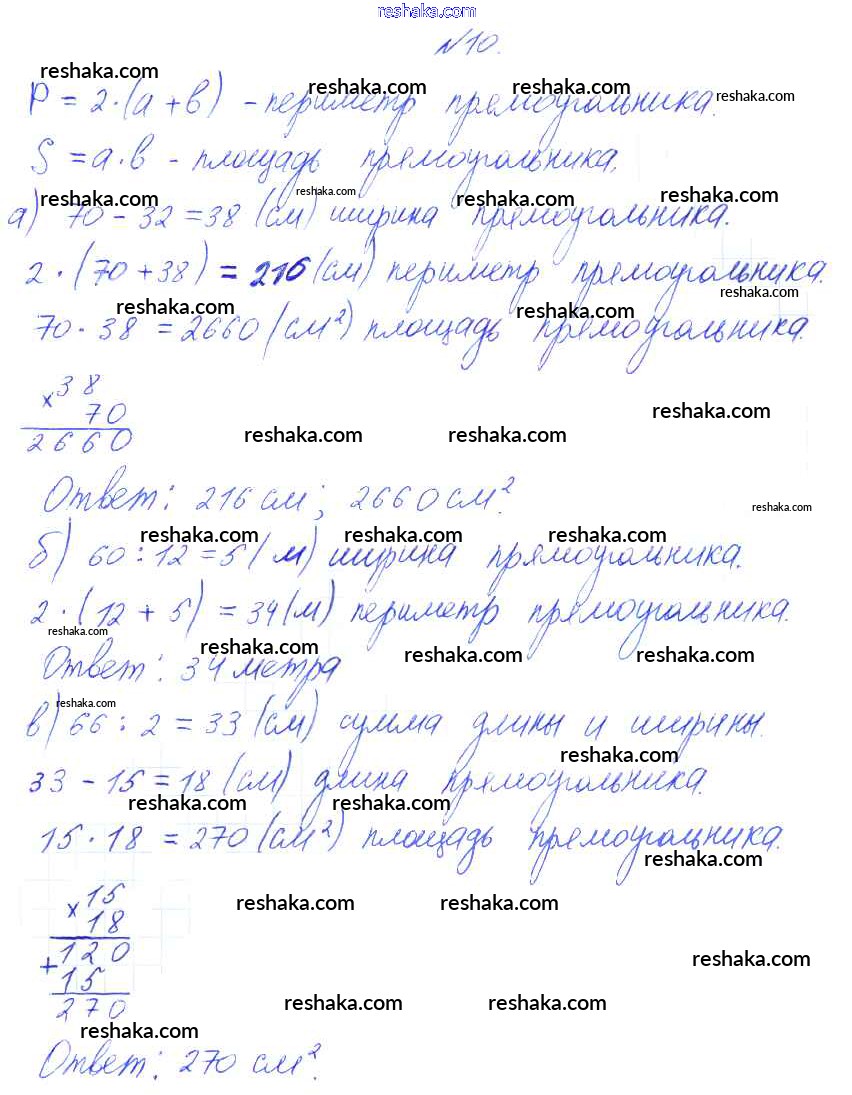 reshaka.com
№10.
reshaka.com
reshaka.com reshaka.com reshaka.com
P = 2·(a+b) - периметр прямоугольника.
S = a·b - площадь прямоугольника.
reshaka.com reshaka.com reshaka.com reshaka.com
а) 70 - 32 = 38 (см) ширина прямоугольника.
2 · (70 + 38) = 216 (см) периметр прямоугольника.
reshaka.com reshaka.com reshaka.com
70 · 38 = 2660 (см²) площадь прямоугольника.
× 38
70
2660
reshaka.com reshaka.com reshaka.com
Ответ: 216 см; 2660 см².
reshaka.com
reshaka.com reshaka.com reshaka.com
б) 60 : 12 = 5 (м) ширина прямоугольника.
2 · (12 + 5) = 34 (м) периметр прямоугольника.
reshaka.com reshaka.com reshaka.com reshaka.com
Ответ: 34 метра
reshaka.com
в) 66 : 2 = 33 (см) сумма длины и ширины.
reshaka.com
33 - 15 = 18 (см) длина прямоугольника.
reshaka.com reshaka.com
15 · 18 = 270 (см²) площадь прямоугольника.
reshaka.com
× 15
18
+ 120
15
270
reshaka.com reshaka.com
reshaka.com
reshaka.com reshaka.com
reshaka.com
Ответ: 270 см².